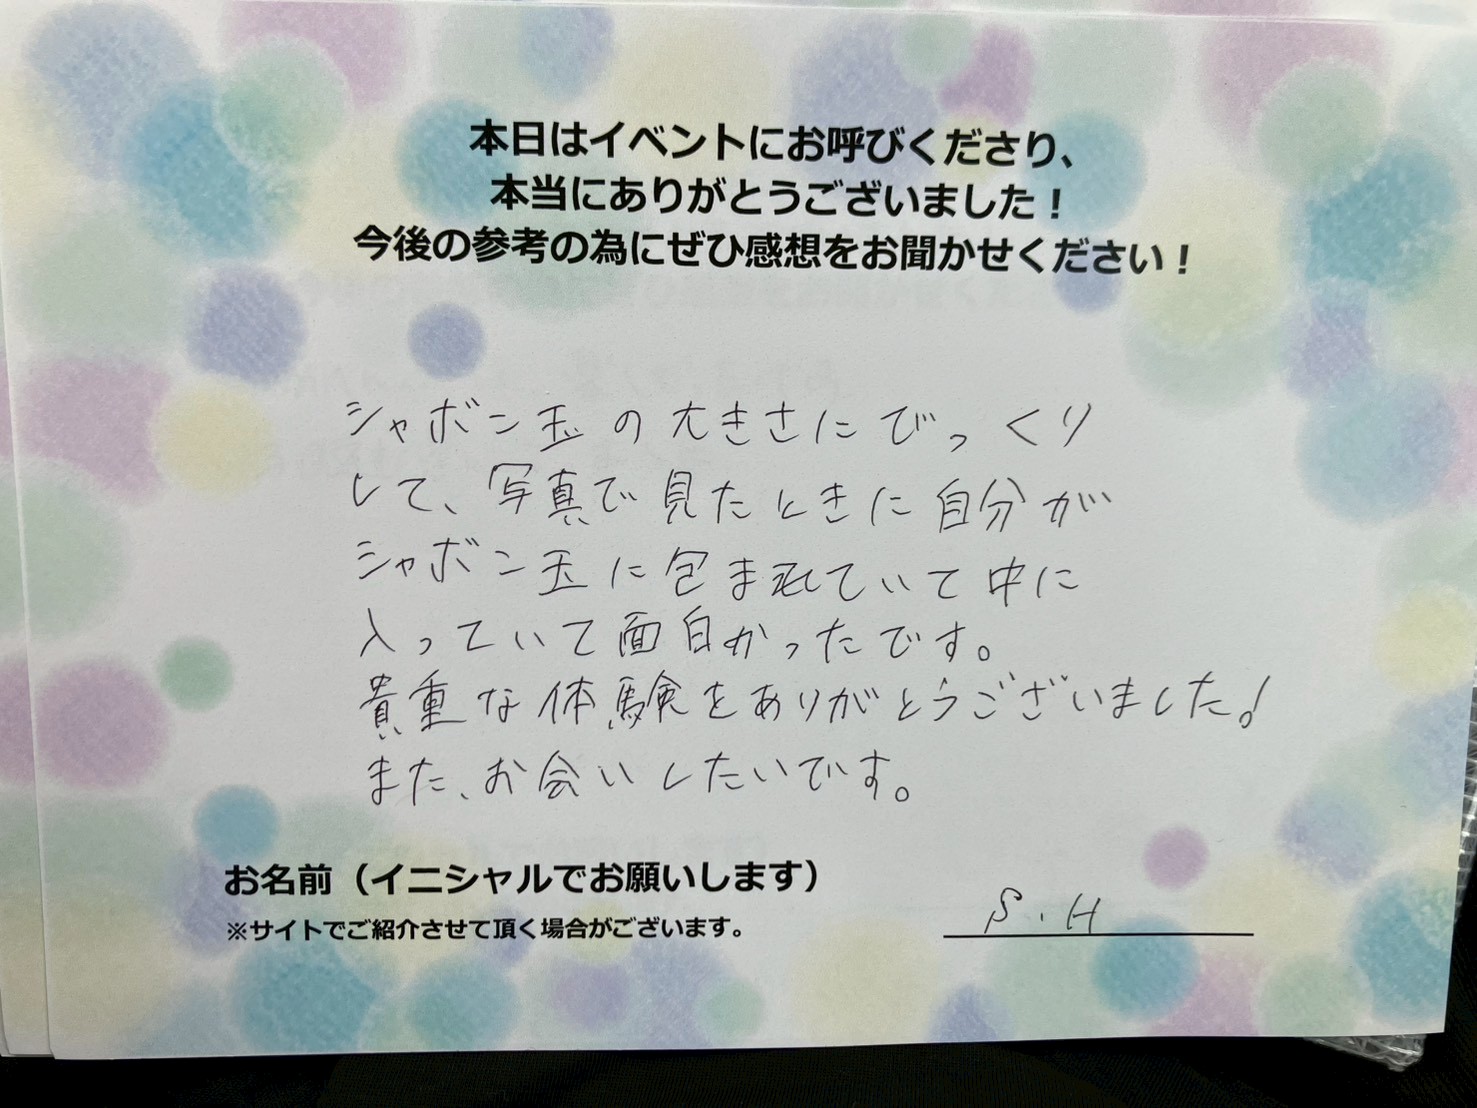 本日はイベントにお呼びくださり、
本当にありがとうございました！
今後の参考の為にぜひ感想をお聞かせください！
シャボン玉の大きさにびっくり
して、写真で見たときに自分が
シャボン玉に包まれていて中に
入っていて面白かったです。
貴重な体験をありがとうございました！
また、お会いしたいです。
お名前（イニシャルでお願いします）
※サイトでご紹介させて頂く場合がございます。
S.H